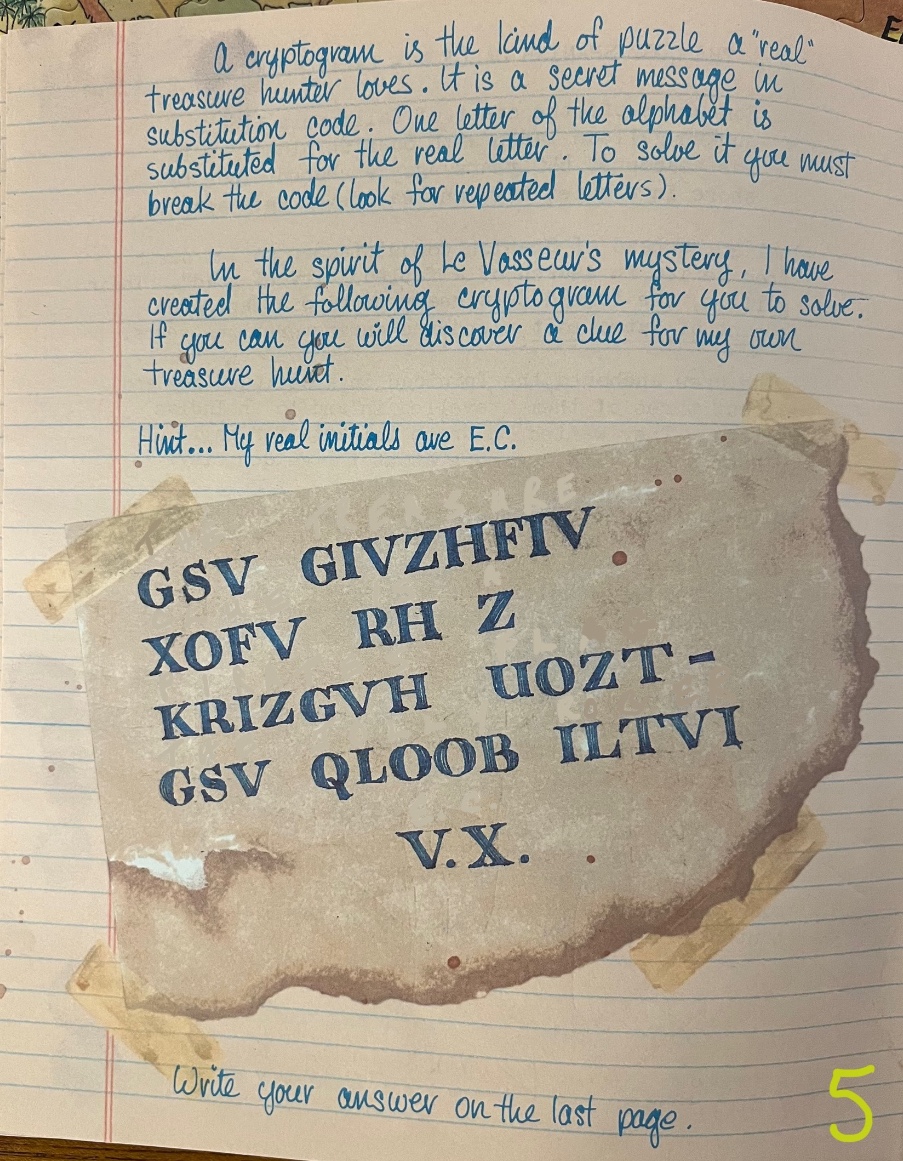 A cryptogram is the kind of puzzle a "real"
treasure hunter loves. It is a secret message in
substitution code. One letter of the alphabet is
substituted for the real letter. To solve it you must
break the code (look for repeated letters).
In the spirit of Le Vasseur's mystery, I have
created the following cryptogram for you to solve.
If you can you will discover a clue for my own
treasure hunt.
Hint... My real initials are E.C.
GSV GIVZHFIV
XOFV RH Z
KRIZGVH UOZT-
GSV QLOOB ILTVI
V.X.
Write your answer on the last page.
5